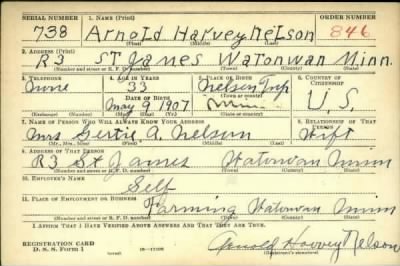 SERIAL NUMBER 1. NAME (Print) ORDER NUMBER
738 Arnold Harvey Nelson 846
(First) (Middle) (Last)
2. ADDRESS (Print)
R3 St James Watonwan Minn.
(Number and street or R. F. D. number) (Town) (County) (State)
3. TELEPHONE 4. AGE IN YEARS 5. PLACE OF BIRTH 6. COUNTRY OF CITIZENSHIP
None 33 Nelson Twp
(Town or county)
DATE OF BIRTH
May 9 1907 Minn U.S.
(Exchange) (Number) (Mo.) (Day) (Yr.) (State or country)
7. NAME OF PERSON WHO WILL ALWAYS KNOW YOUR ADDRESS 8. RELATIONSHIP OF THAT PERSON
Mrs Gertie A. Nelson Wife
(Mr., Mrs., Miss) (First) (Middle) (Last)
9. ADDRESS OF THAT PERSON
R3 St James Watonwan Minn
(Number and street or R. F. D. number) (Town) (County) (State)
10. EMPLOYER'S NAME
Self
11. PLACE OF EMPLOYMENT OR BUSINESS
Farming Watonwan Minn
(Number and street or R. F. D. number) (Town) (County) (State)
I AFFIRM THAT I HAVE VERIFIED ABOVE ANSWERS AND THAT THEY ARE TRUE.
REGISTRATION CARD
D. S. S. Form 1 Arnold Harvey Nelson
(Registrant's signature)